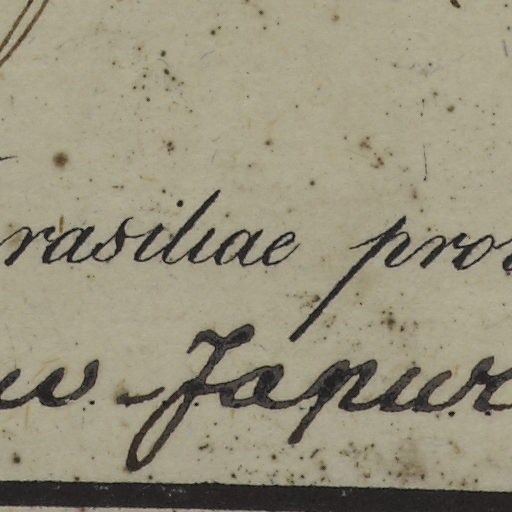 rasiliae pro
Japur